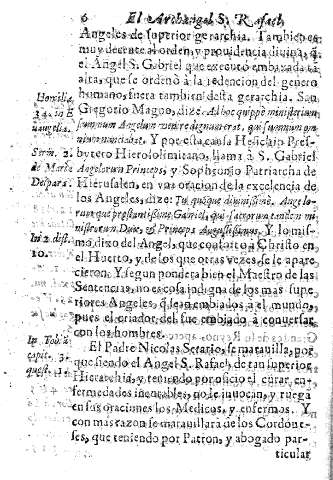 6 El Archangel S. Rafael,
Angeles de superior gerarchia. Tambien es
muy decente al orden, y providencia divina, q̃
el Angel S. Gabriel que executó embaxada tã
alta, que se ordenò a la redencion del genero
humano, fuera tambien desta gerarchia. San
Homilia
34. in E
uangelia.
Gregorio Magno, dize: Ad hoc quippè ministerium
summum Angelum venire dignum erat, qui summum om
nium nunciabat. Y por esta causa Hesichio Pres-
Serm. 2.
de Maria
Deipara.
bytero Hierosolimitano, llama à S. Gabriel
Angelorum Princeps, y Sophronio Patriarcha de
Hierusalen, en vna oracion de la excelencia de
los Angeles, dize: Tu quoque diuinissime Angelo-
rum que prestantissime Gabriel, qui sacrorum tandem mi
nistrorum Dux, & Princeps Augustissimus. Y lo mis-
In 2. dist.
10.
mo, dixo del Angel, que confortò a Christo en
el Huerto, y de los que otras vezes, se le apare
cieron. Y segun pondera bien el Maestro de las
Sentencias, no es cosa indigna de los mas supe
riores Angeles, q̃ sean embiados a el mundo,
pues el criador, del fue embiado à conversar
con los hombres.
In Tob.
capit. 3.
quest.
El Padre Nicolas Serario, se maravilla, por
que siendo el Angel S. Rafael, de tan superior
Hierarchia, y teniendo por oficio el curar, en-
fermedades incurables, no le invocan, y ruega
en sus oraciones los Medicos, y enfermos. Y
con mas razon se maravillara de los Cordone-
ses, que teniendo por Patron, y abogado par-
ticular